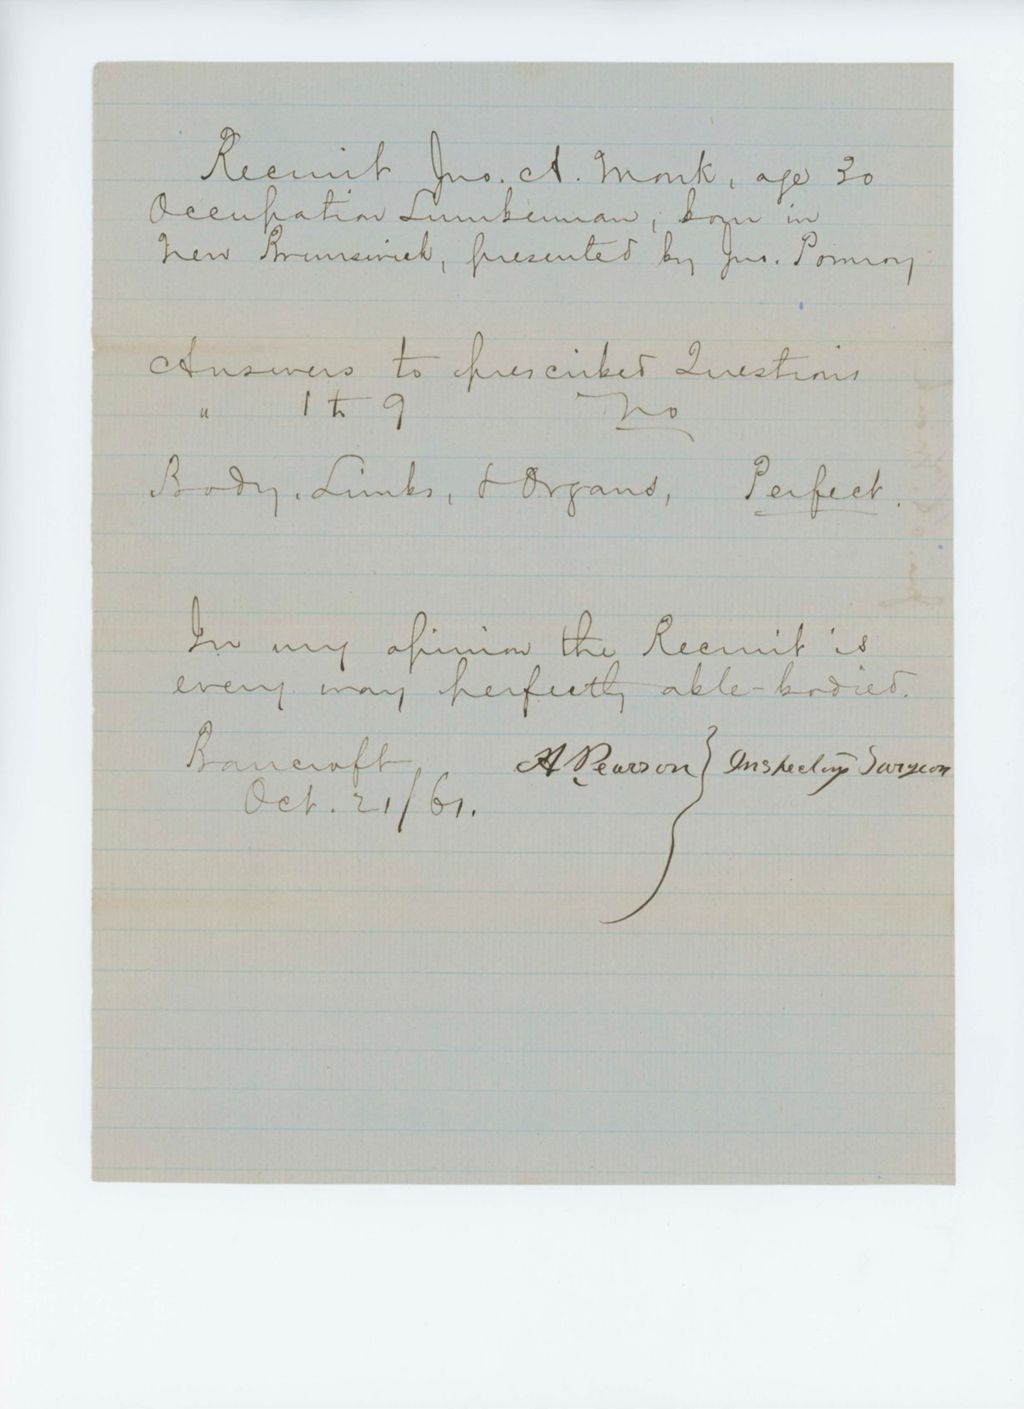 Recruit Jno. A. Monk, age 30
Occupation Lumberman, born in
New Brunswick, presented by Jno. Pomroy
Answers to prescribed Questions
" 1 to 9 No
Body, Limbs, & Organs, Perfect.
In my opinion the Recruit is
every way perfectly able-bodied.
Bancroft A Pearson } Inspecting Surgeon
Oct. 21/61.